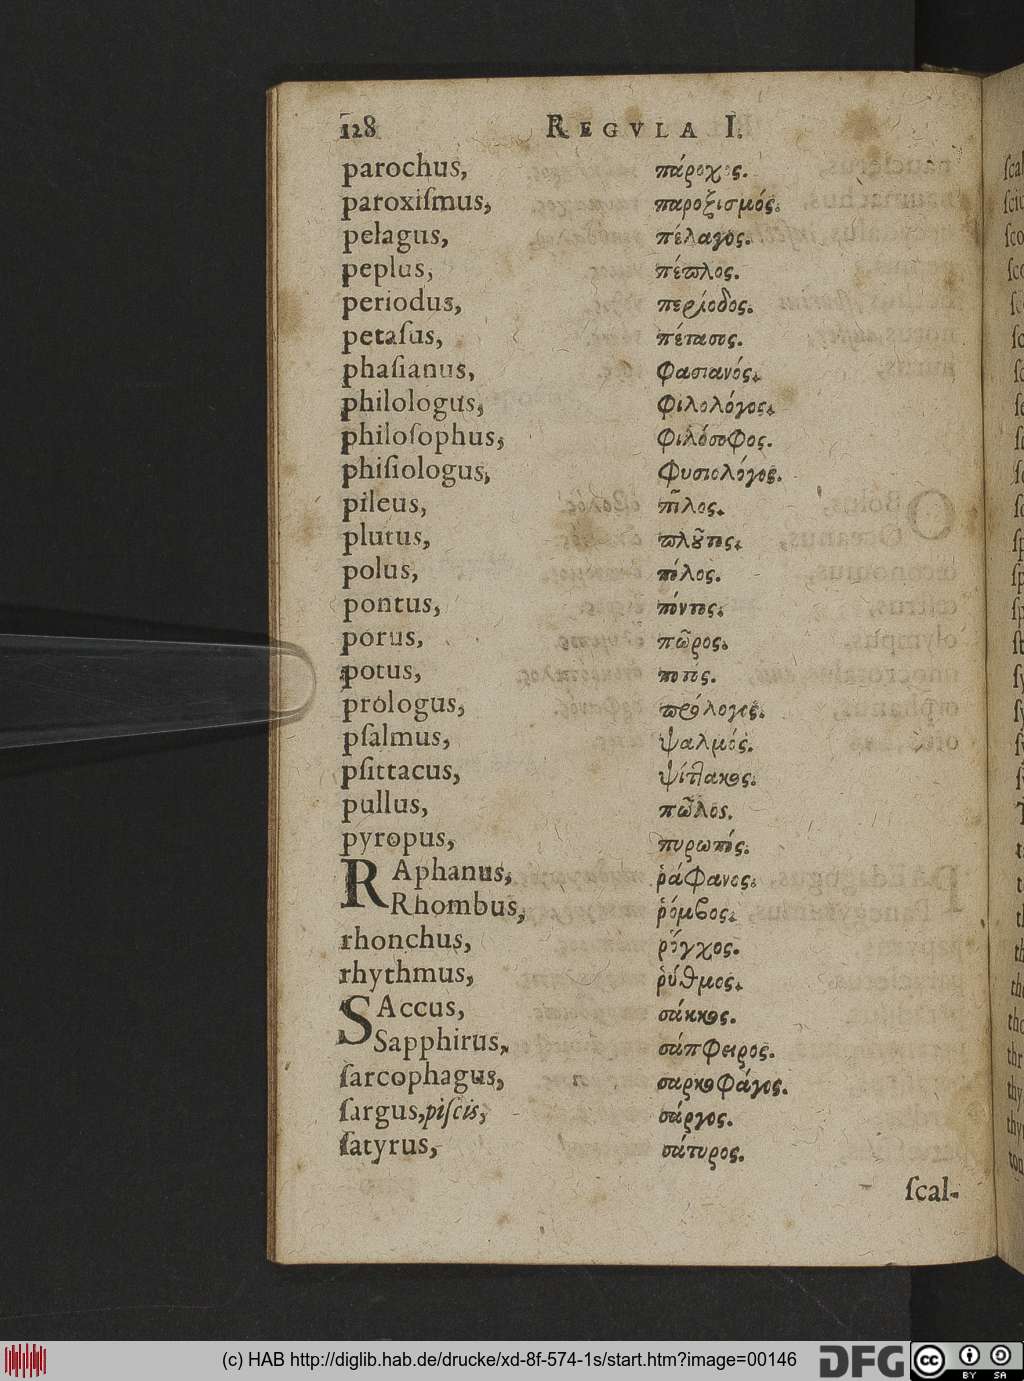 128 REGVLA I.
parochus, πάροχος.
paroxiſmus, παροξισμός.
pelagus, πέλαγος.
peplus, πέπλος.
periodus, περίοδος.
petaſus, πέτασος.
phaſianus, φασιανός.
philologus, φιλολόγος.
philoſophus, φιλόσοφος.
phiſiologus, φυσιολόγος.
pileus, πῖλος.
plutus, πλοῦτος.
polus, πόλος.
pontus, πόντος.
porus, πῶρος.
potus, ποτος.
prologus, πρόλογος.
pſalmus, ψαλμός.
pſittacus, ψίττακος.
pullus, πῶλος.
pyropus, πυρωπός.
RAphanus, ῥάφανος.
Rhombus, ῥόμβος.
rhonchus, ρόγχος.
rhythmus, ῥύθμος.
SAccus, σάκκος.
Sapphirus, σάπφειρος.
ſarcophagus, σαρκοφάγος.
ſargus, piſcis, σάργος.
ſatyrus, σάτυρος.
ſcal-
(c) HAB http://diglib.hab.de/drucke/xd-8f-574-1s/start.htm?image=00146
DFG
cc BY SA